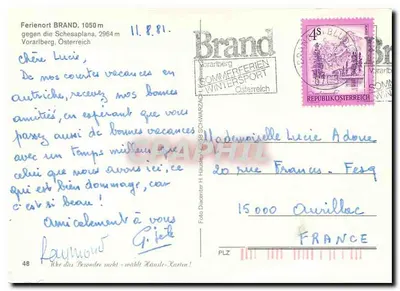 Ferienort BRAND, 1050 m
gegen die Schesaplana, 2964 m
Vorarlberg, Österreich
11.8.81
Chère Lucie,
De nos courtes vacances en
autriche, recevez nos bonnes
amitiés, en espérant que vous
passez aussi de bonnes vacances
avec un temps meilleur que
celui que nous avons ici, ce
qui est bien dommage, car
c'est si beau!
Amicalement à vous
Raymond
48
Brand
Vorarlberg
SOMMERFERIEN
WINTERSPORT
Österreich
4S
REPUBLIK ÖSTERREICH
Brand
Mademoiselle Lucie
20 rue Francs-
15000 Aurillac
FRANCE
PLZ